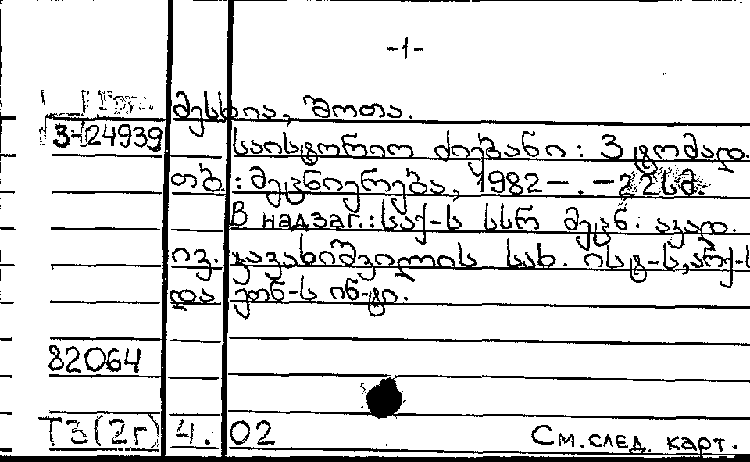 -1-
მესხია, შოთა.
3-24939 საისტორიო ძიებანი: 3 ტომად.
თბ.: მეცნიერება, 1982-. -22სმ.
В надзаг.: საქ-ს სსრ მეცნ. აკად.
ივ. ჯავახიშვილის სახ. ისტ-ს, არქ-ს
და ეთნ-ს ინ-ტი.
82064
Т3(2Г) 4. 02 См. след. карт.